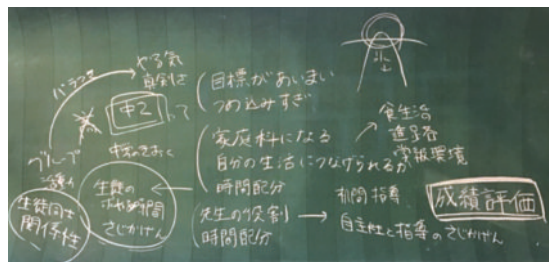 バラつき
やる気
真剣さ
中2
って
グループ
活動
生徒同士
関係性
中学の
生徒の
時間
さじかげん
目標があいまい
つめ込みすぎ
家庭科になる
自分の生活につなげられるか
時間配分
先生の役割
時間配分
食生活
学級環境
机間指導
自主性と指導のさじかげん
成績評価